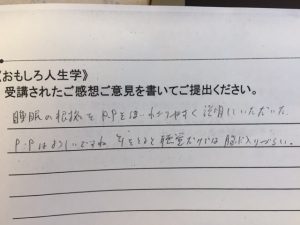 《おもしろ人生学》
受講されたご感想ご意見を書いてご提出ください。
睡眠の根拠を P.Pとは わかりやすく 説明していただいた
P.Pはよろしいですね 年をとると聴覚だけでは 脳に入りづらい。